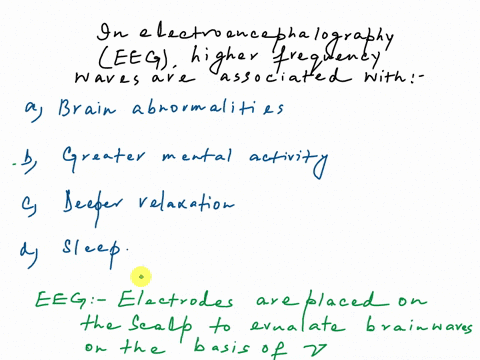 In electroencephalography
(EEG), higher frequency
waves are associated with:-
a) Brain abnormalities
b) Greater mental activity
c) Deeper relaxation
d) Sleep.
EEG:- Electrodes are placed on
the scalp to evualate brainwaves
on the basis of ν